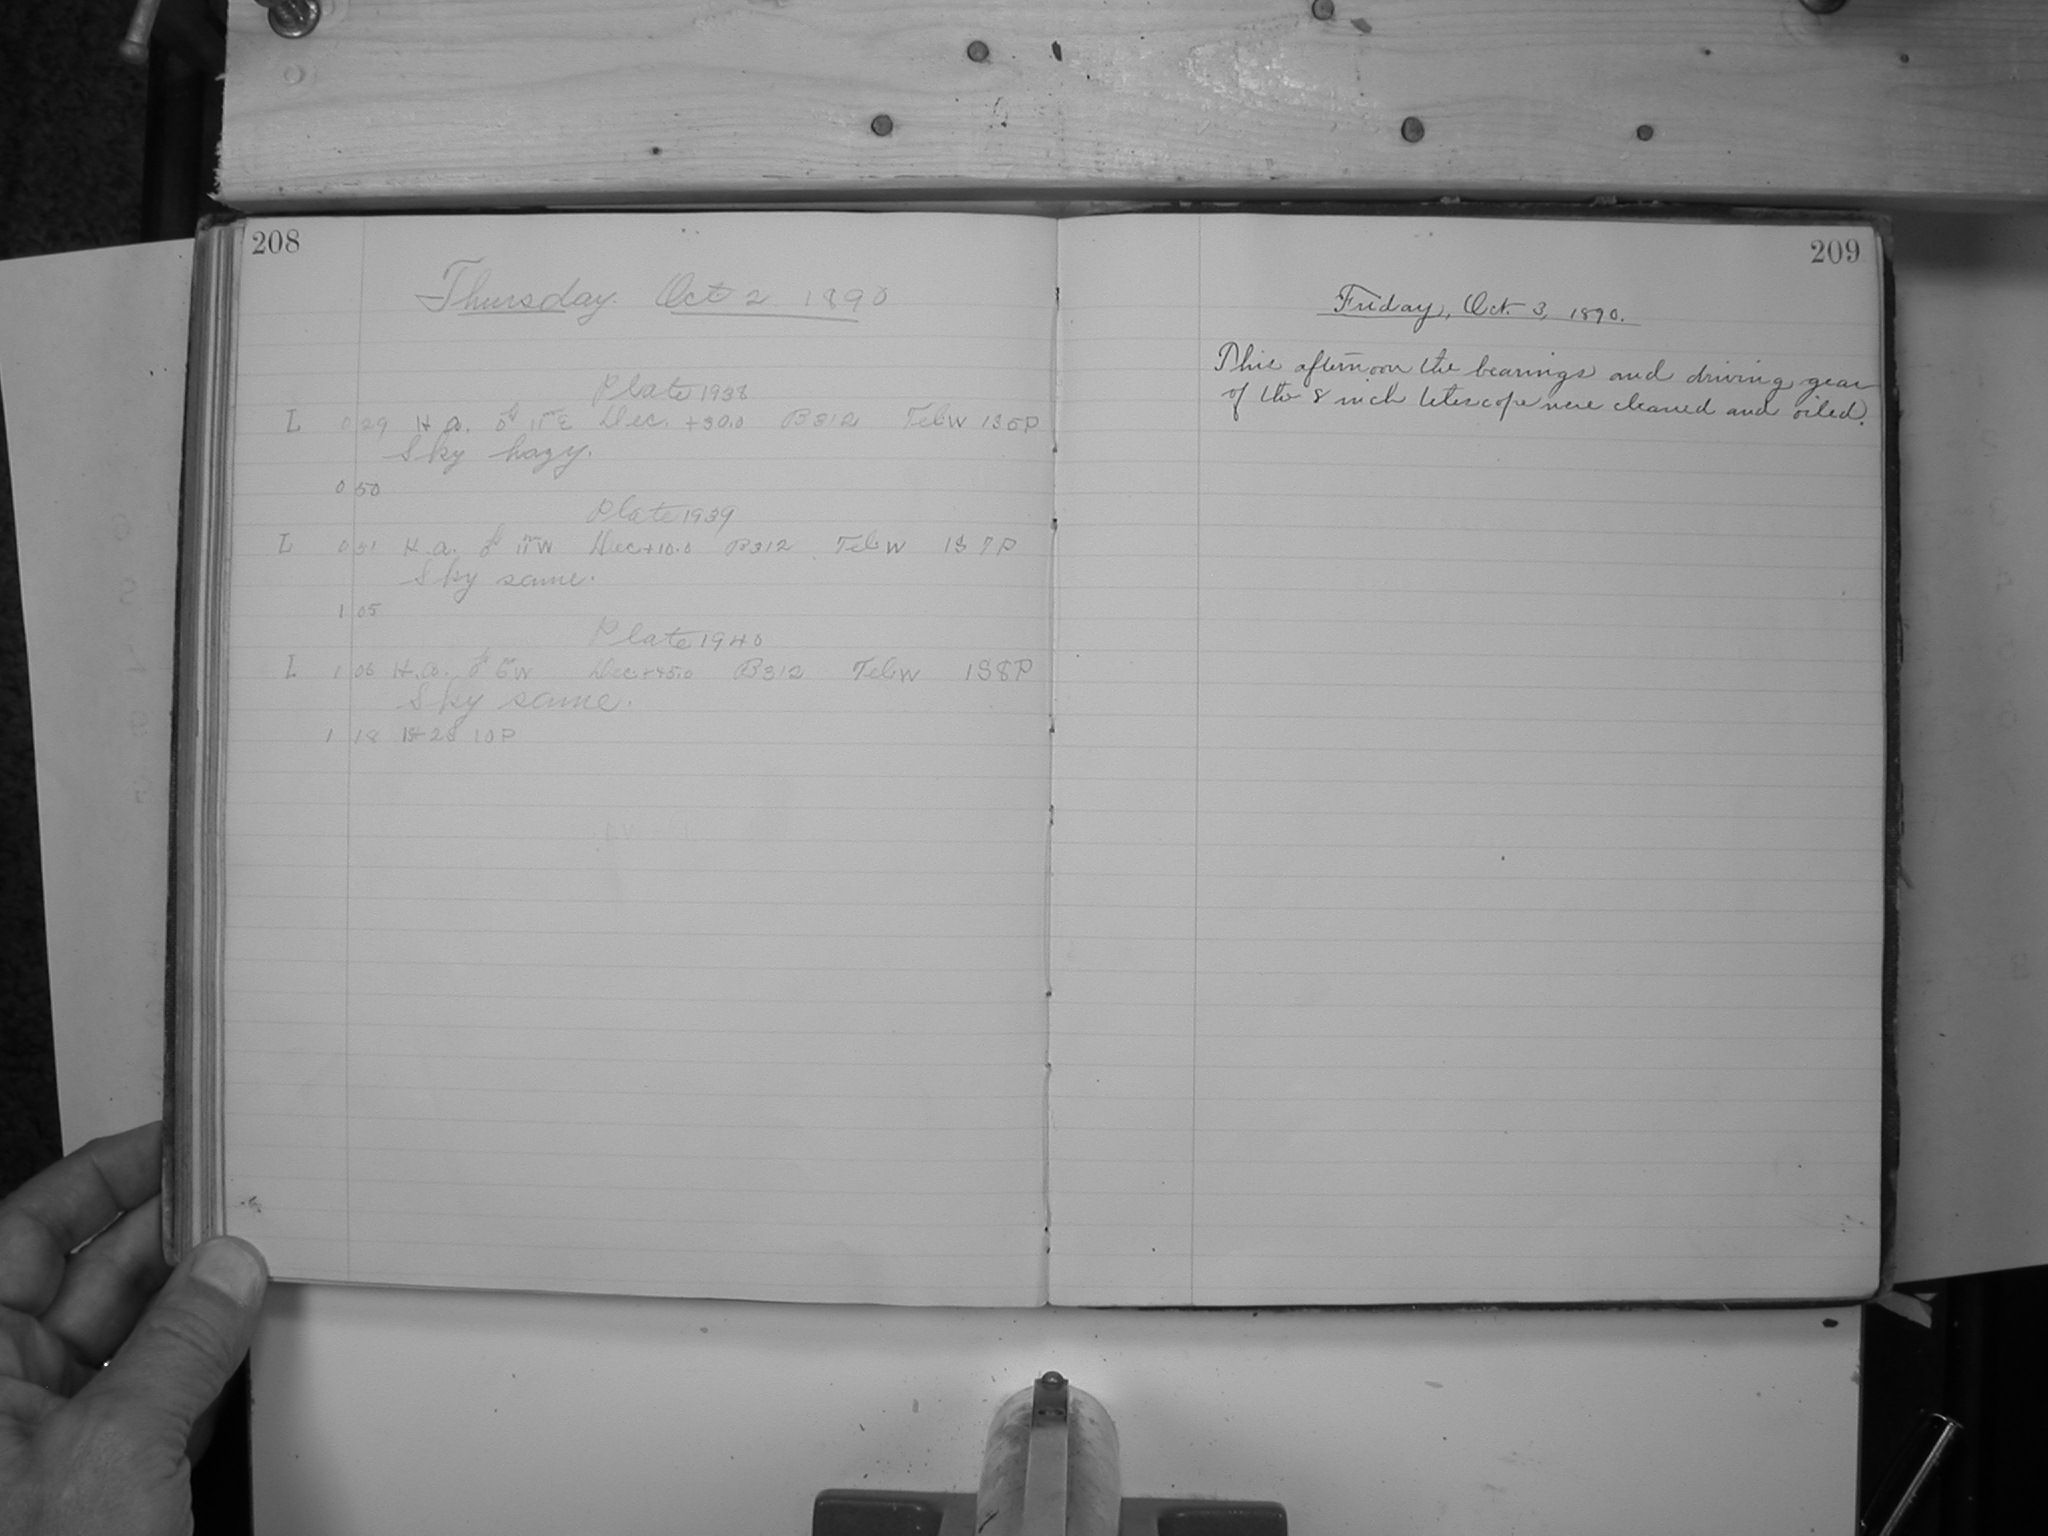 208
Thursday. Oct 2 1890
Plate 1938
L 0 29 H.a. 0h 11m E Dec. +30.0 B312 Tel.W 136P
Sky hazy.
0 50
Plate 1939
L 0 51 H.a. 0h 11m W Dec +10.0 B312 Tel.W 137P
Sky same.
1 05
Plate 1940
L 1 06 H.a. 0h 5m W Dec. +45.0 B312 Tel.W 138P
Sky same.
1 18
209
Friday, Oct. 3, 1890.
This afternoon the bearings and driving gear
of the 8 inch telescope were cleaned and oiled.